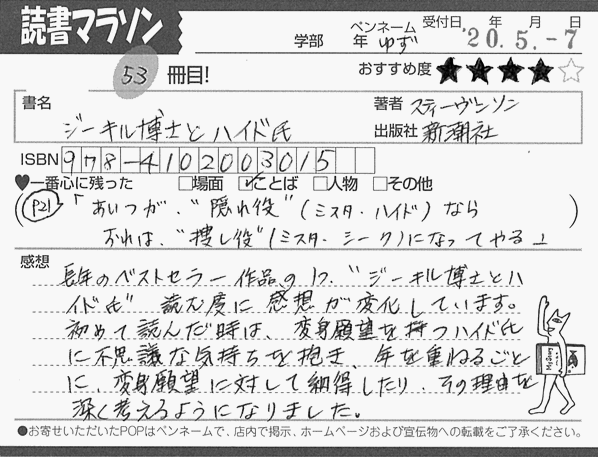 読書マラソン
学部 年 ペンネーム ゆず 受付日 年 月 日
'20.5.-7
53 冊目!
おすすめ度 ★★★★☆
書名
ジーキル博士とハイド氏
著者 スティーヴンソン
出版社 新潮社
ISBN 978-4102003015
♥一番心に残った □場面 ☑ことば □人物 □その他
(P21 「あいつが、“隠れ役”(ミスタ・ハイド)なら
おれは、“捜し役”(ミスタ・シーク)になってやる」)
感想
長年のベストセラー作品の1つ、“ジーキル博士とハ
イド氏” 読む度に感想が変化しています。
初めて読んだ時は、変身願望を持つハイド氏
に不思議な気持ちを抱き、年を重ねるごと
に、変身願望に対して納得したり、その理由を
深く考えるようになりました。
●お寄せいただいたPOPはペンネームで、店内で掲示、ホームページおよび宣伝物への転載をご了承ください。